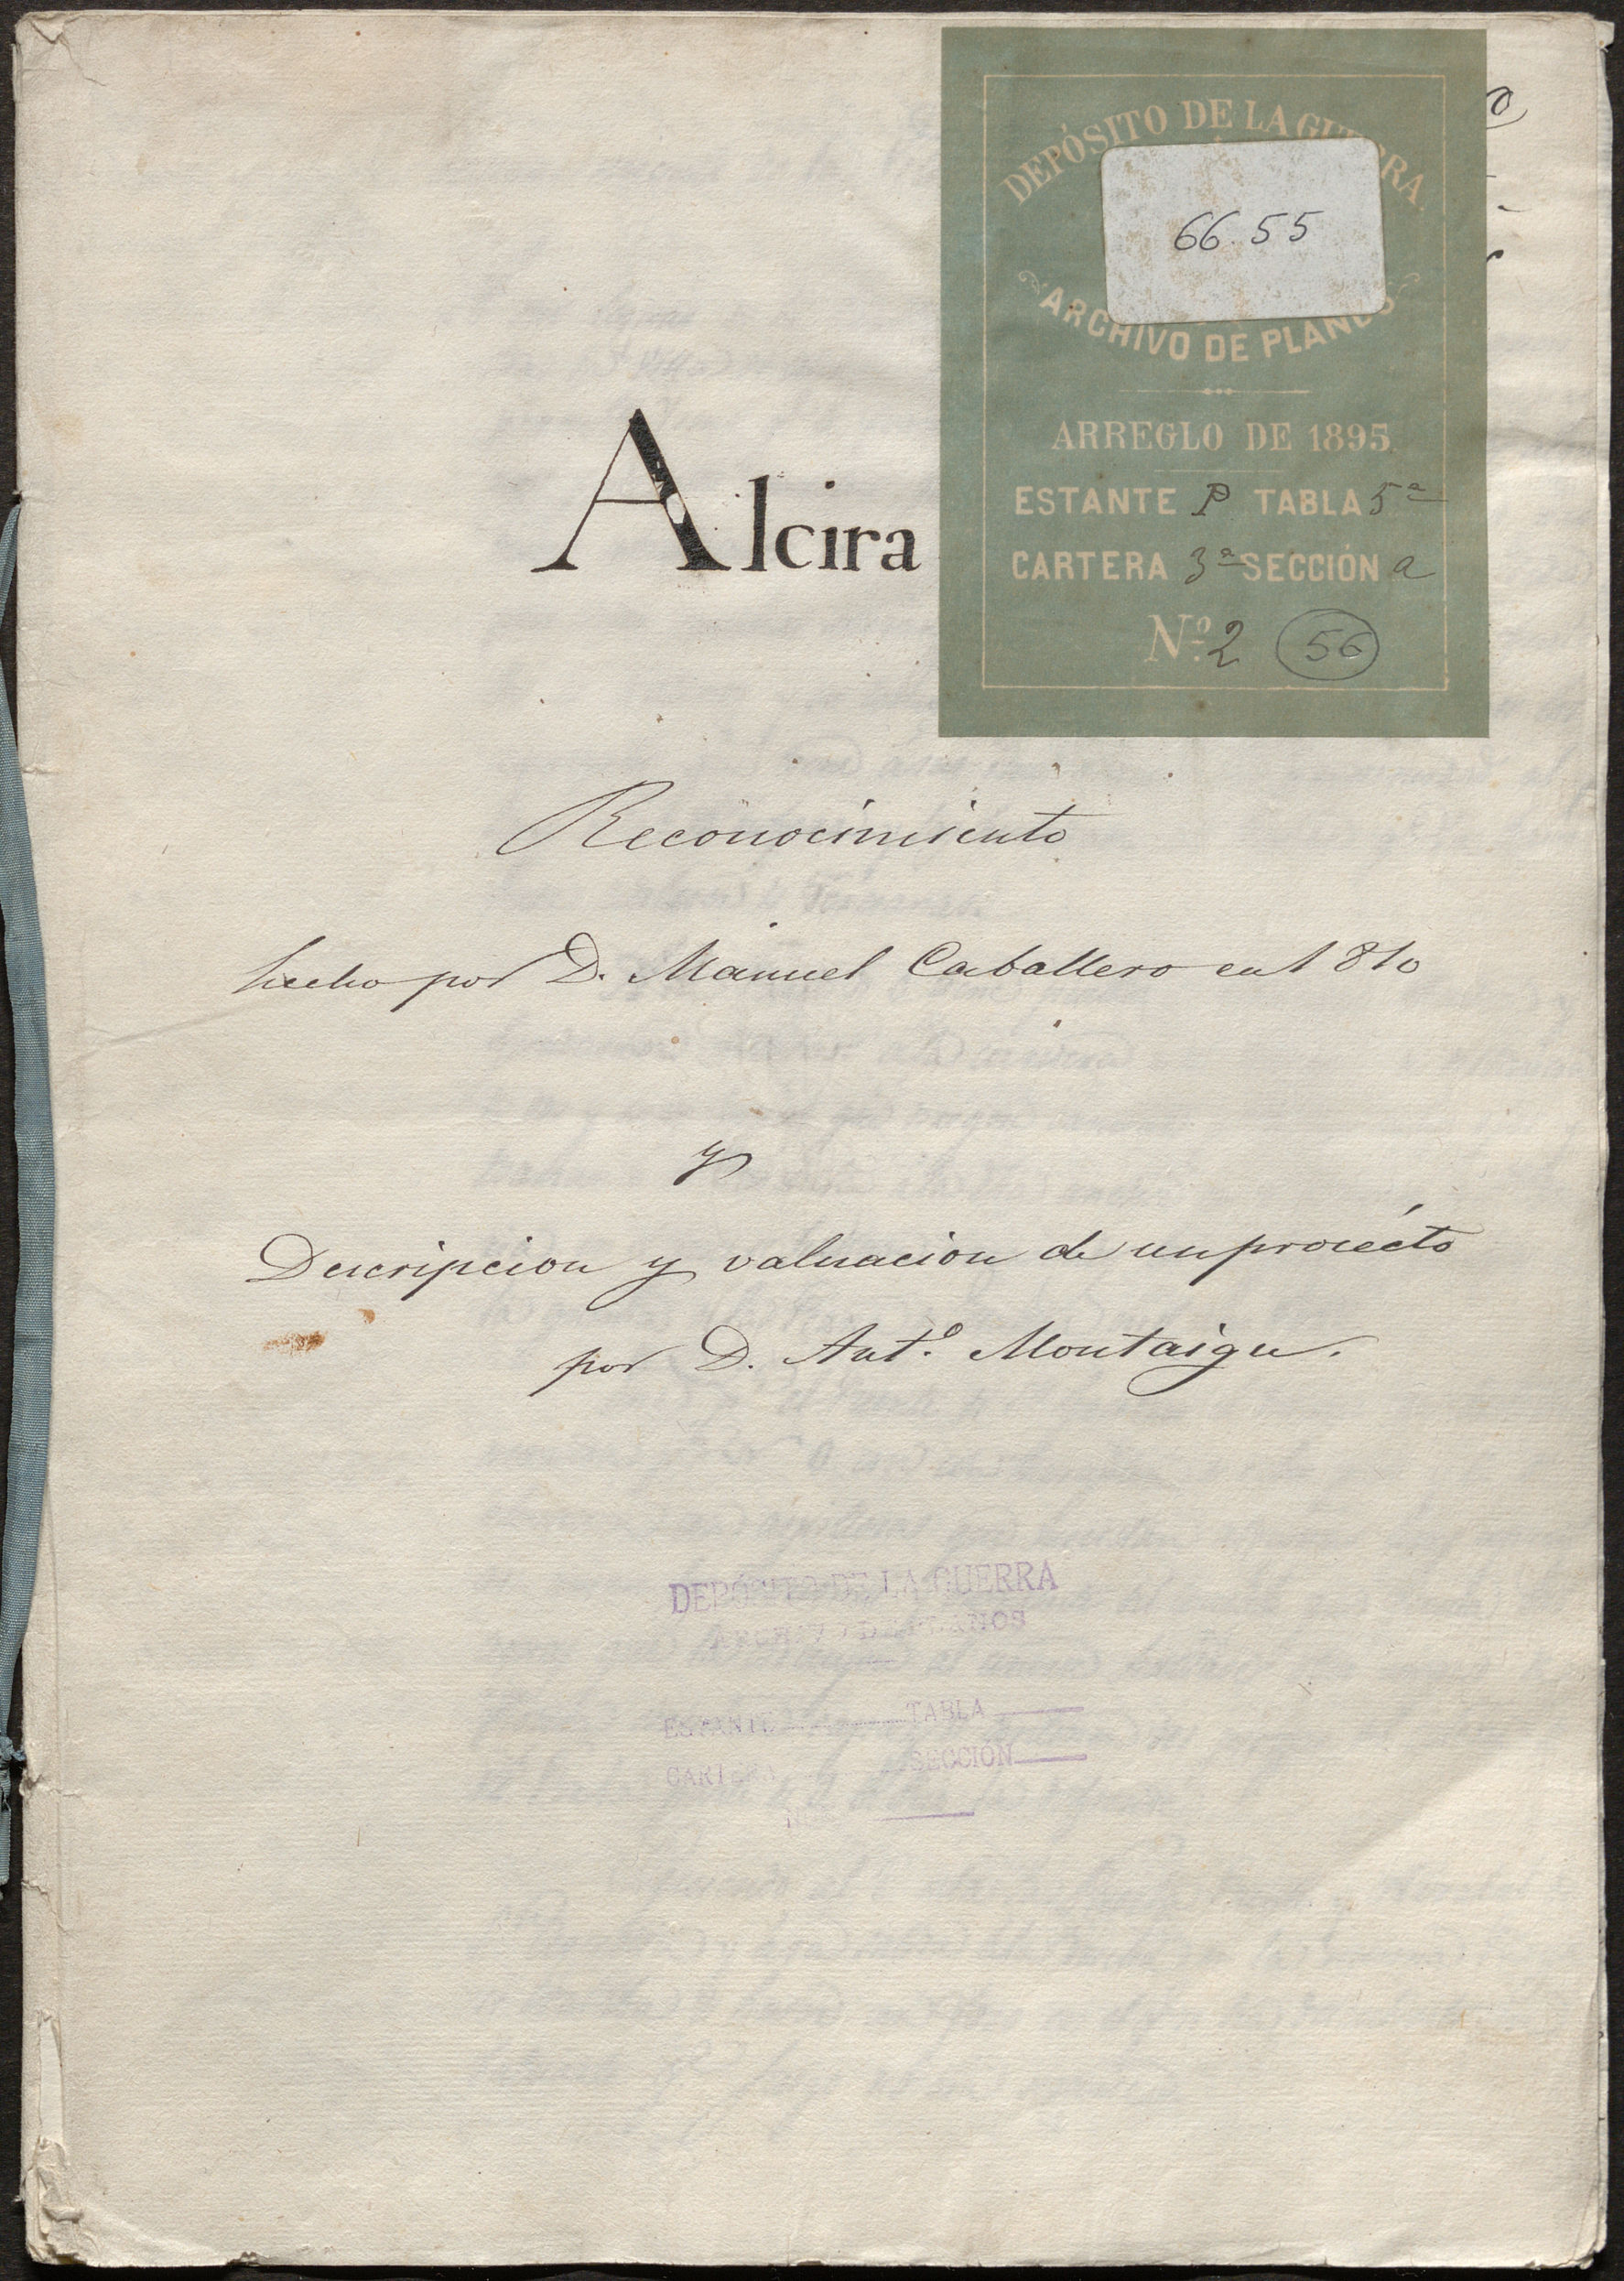 DEPÓSITO DE LA GUERRA
66.55
ARCHIVO DE PLANOS
ARREGLO DE 1895
ESTANTE P TABLA 5ª
CARTERA 3ª SECCIÓN a
Nº 2 56
Alcira
Reconocimiento
hecho por D. Manuel Caballero en 1810
y
Descripcion y valuacion de un proiécto
por D. Antº. Montaigu.
DEPÓSITO DE LA GUERRA
ARCHIVO DE PLANOS
ESTANTE TABLA
CARTERA SECCIÓN